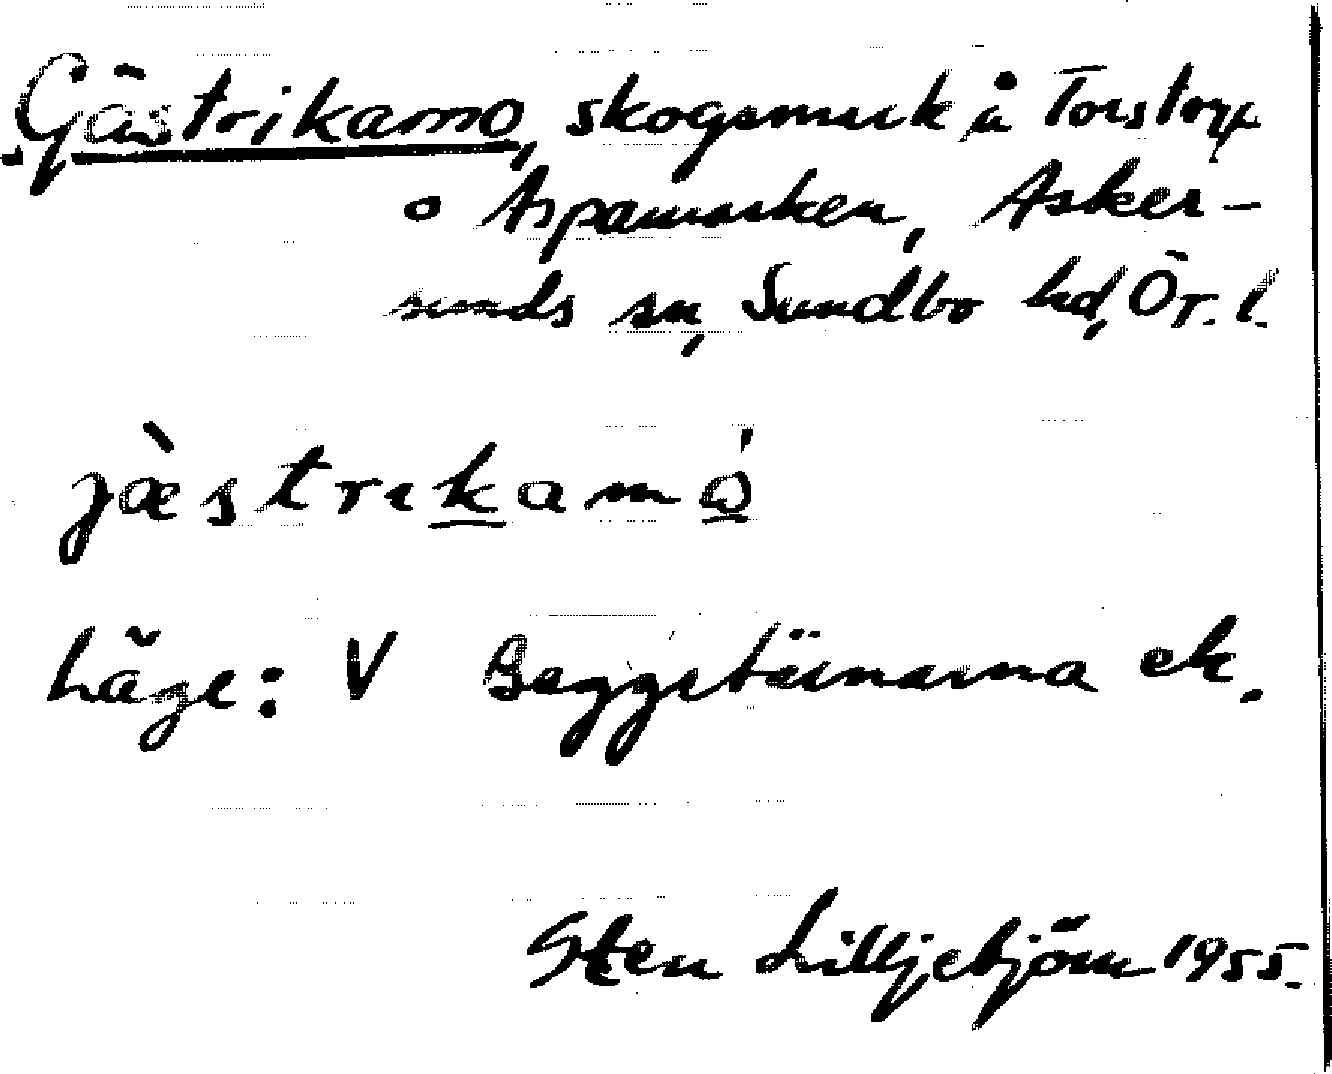 Gästrikamo, skogsmark å Torstorp
o Aspamarken, Asker-
sunds sn, Sundbo hd, Ör. l.
jæ̀strikamó
Läge: V Baggetäinarna ek.
Sten Lilljebjörn 1955.